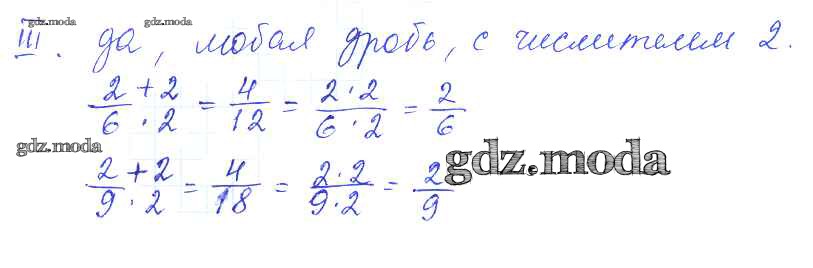 gdz.moda gdz.moda
III. да, любая дробь, с числителем 2.
2 + 2 / 6 · 2 = 4 / 12 = 2 · 2 / 6 · 2 = 2 / 6
gdz.moda
gdz.moda
2 + 2 / 9 · 2 = 4 / 18 = 2 · 2 / 9 · 2 = 2 / 9